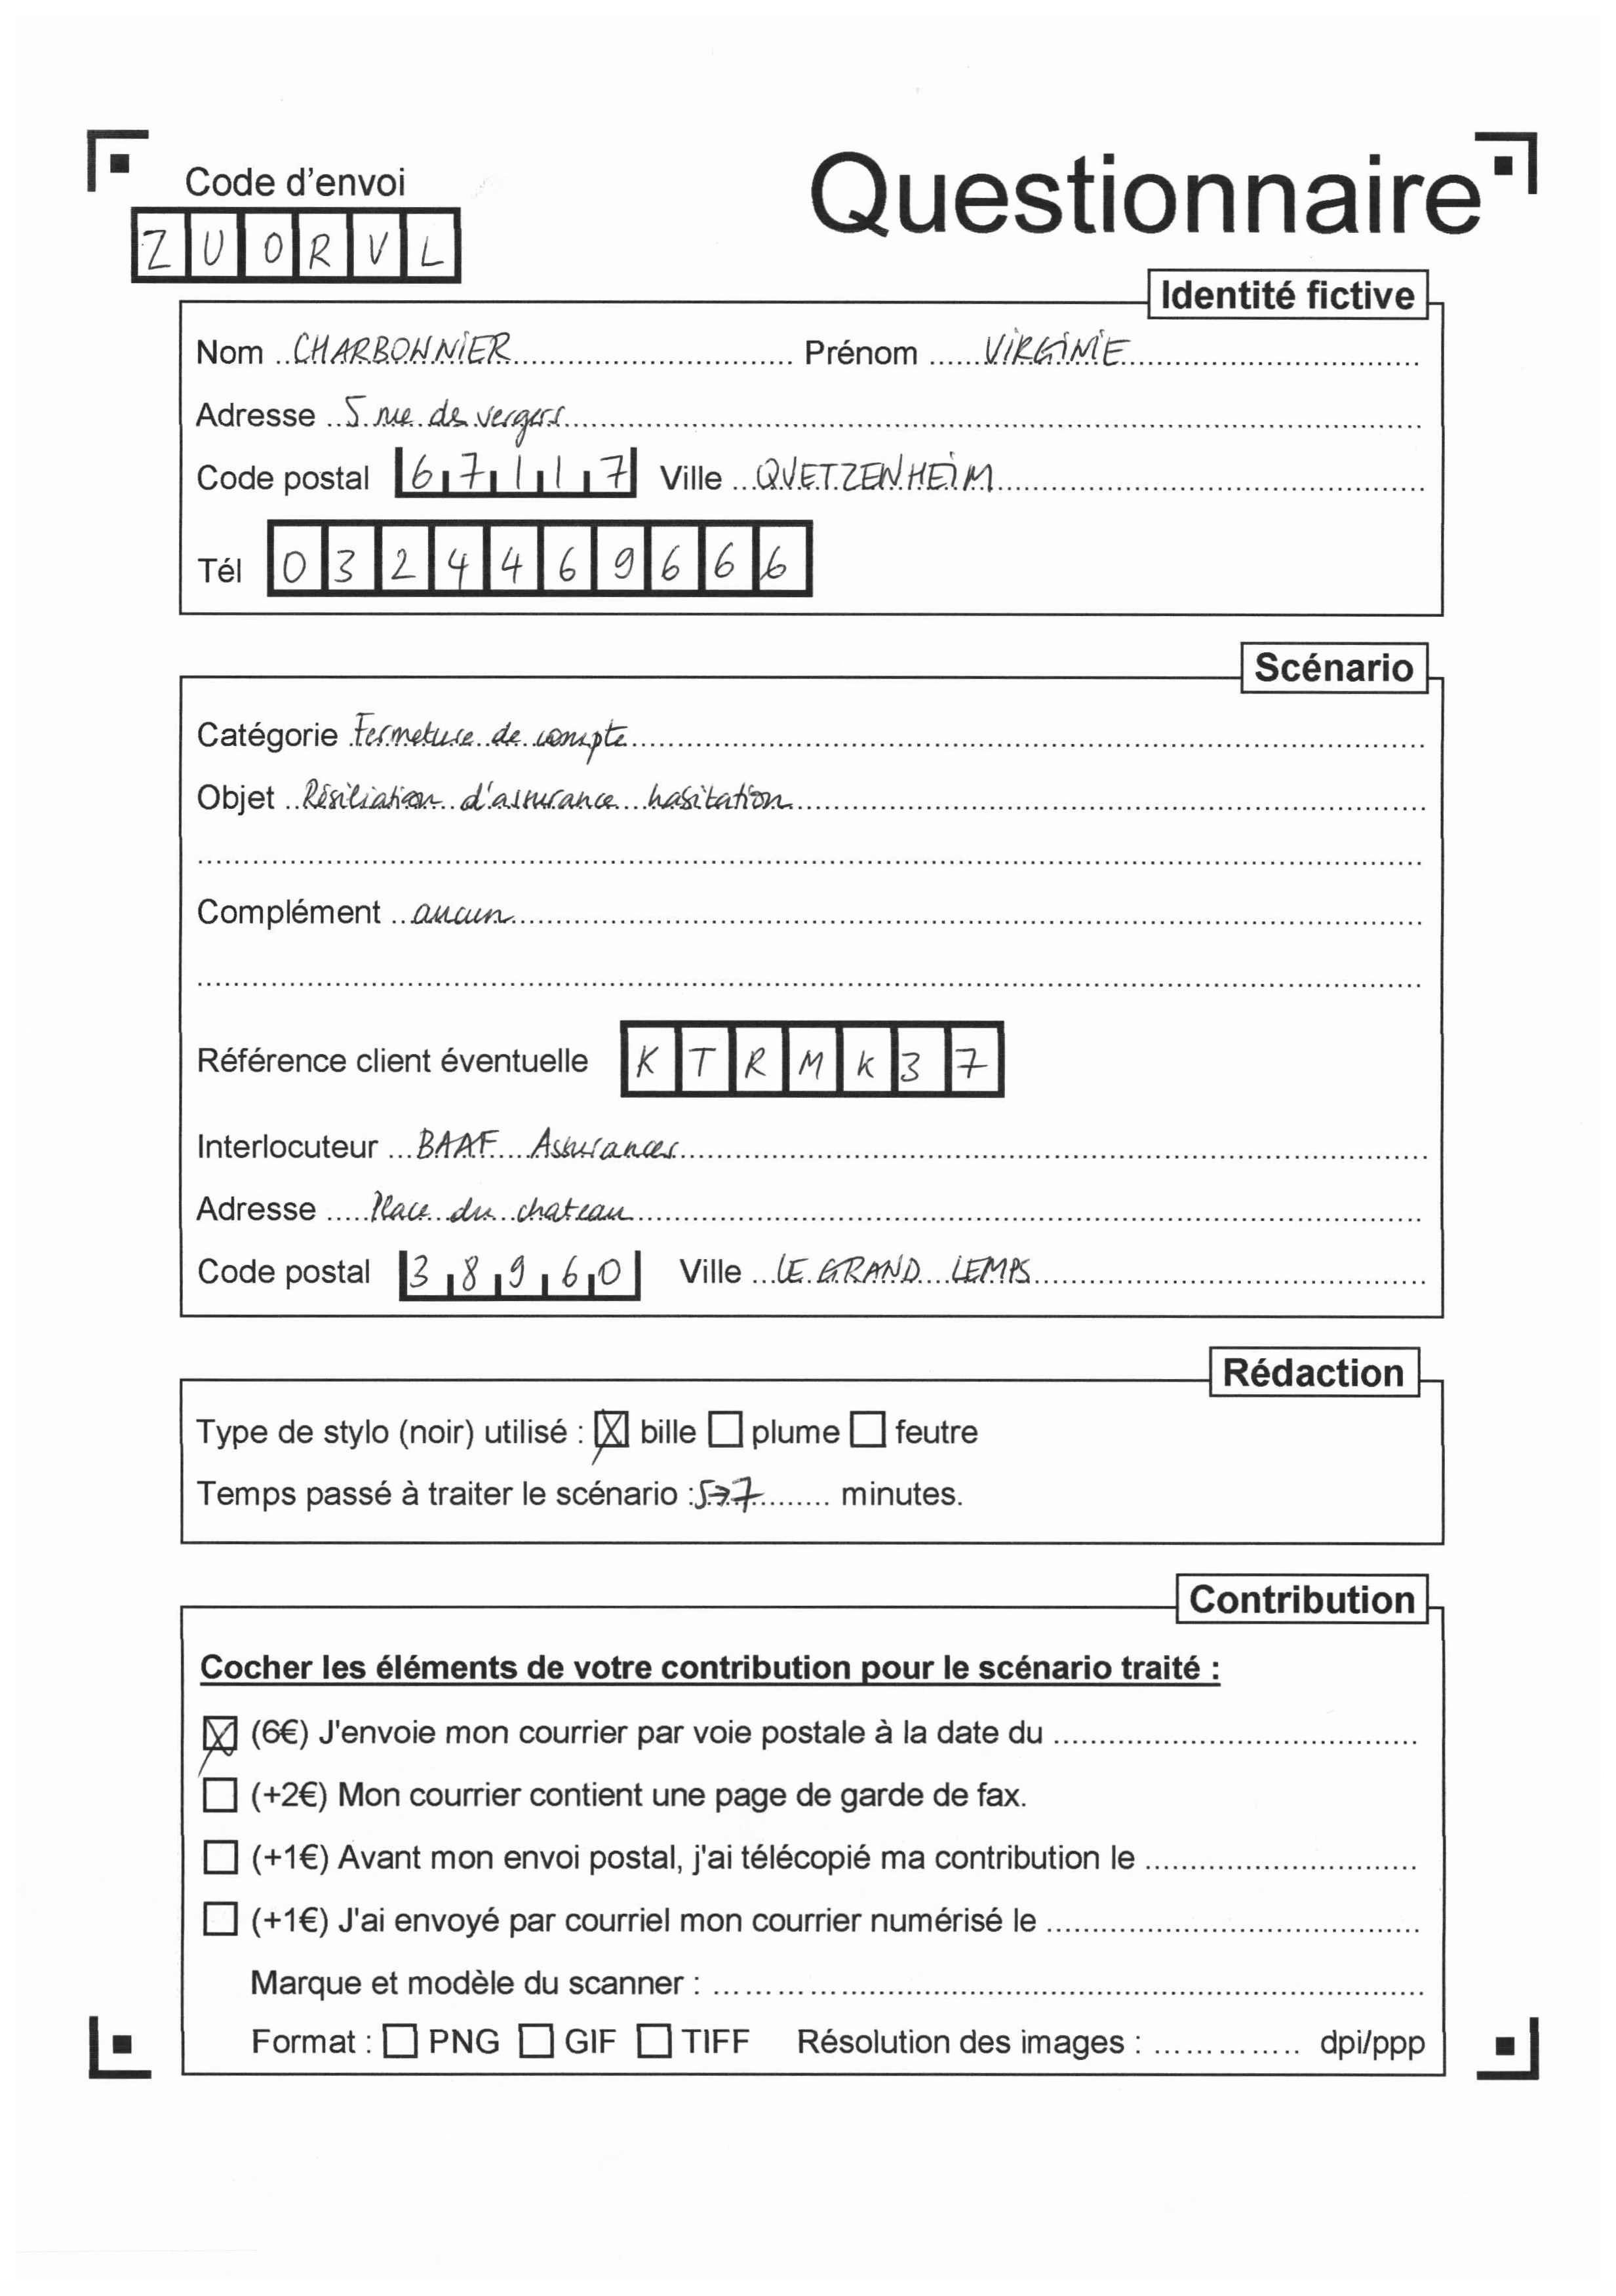 Code d'envoi
Questionnaire
ZUORVL
Identité fictive
Nom CHARBONNIER Prénom VIRGINIE
Adresse 5 rue de vergers
Code postal 67117 Ville QUETZENHEIM
Tél 0324469666
Scénario
Catégorie Fermeture de compte
Objet Résiliation d'assurance habitation
Complément aucun
Référence client éventuelle KTRMK37
Interlocuteur BAAF Assurances
Adresse Place du chateau
Code postal 38960 Ville LE GRAND LEMPS
Rédaction
Type de stylo (noir) utilisé : ☒ bille ☐ plume ☐ feutre
Temps passé à traiter le scénario : 5→7 minutes.
Contribution
Cocher les éléments de votre contribution pour le scénario traité :
☒ (6€) J'envoie mon courrier par voie postale à la date du
☐ (+2€) Mon courrier contient une page de garde de fax.
☐ (+1€) Avant mon envoi postal, j'ai télécopié ma contribution le
☐ (+1€) J'ai envoyé par courriel mon courrier numérisé le
Marque et modèle du scanner :
Format : ☐ PNG ☐ GIF ☐ TIFF Résolution des images : dpi/ppp